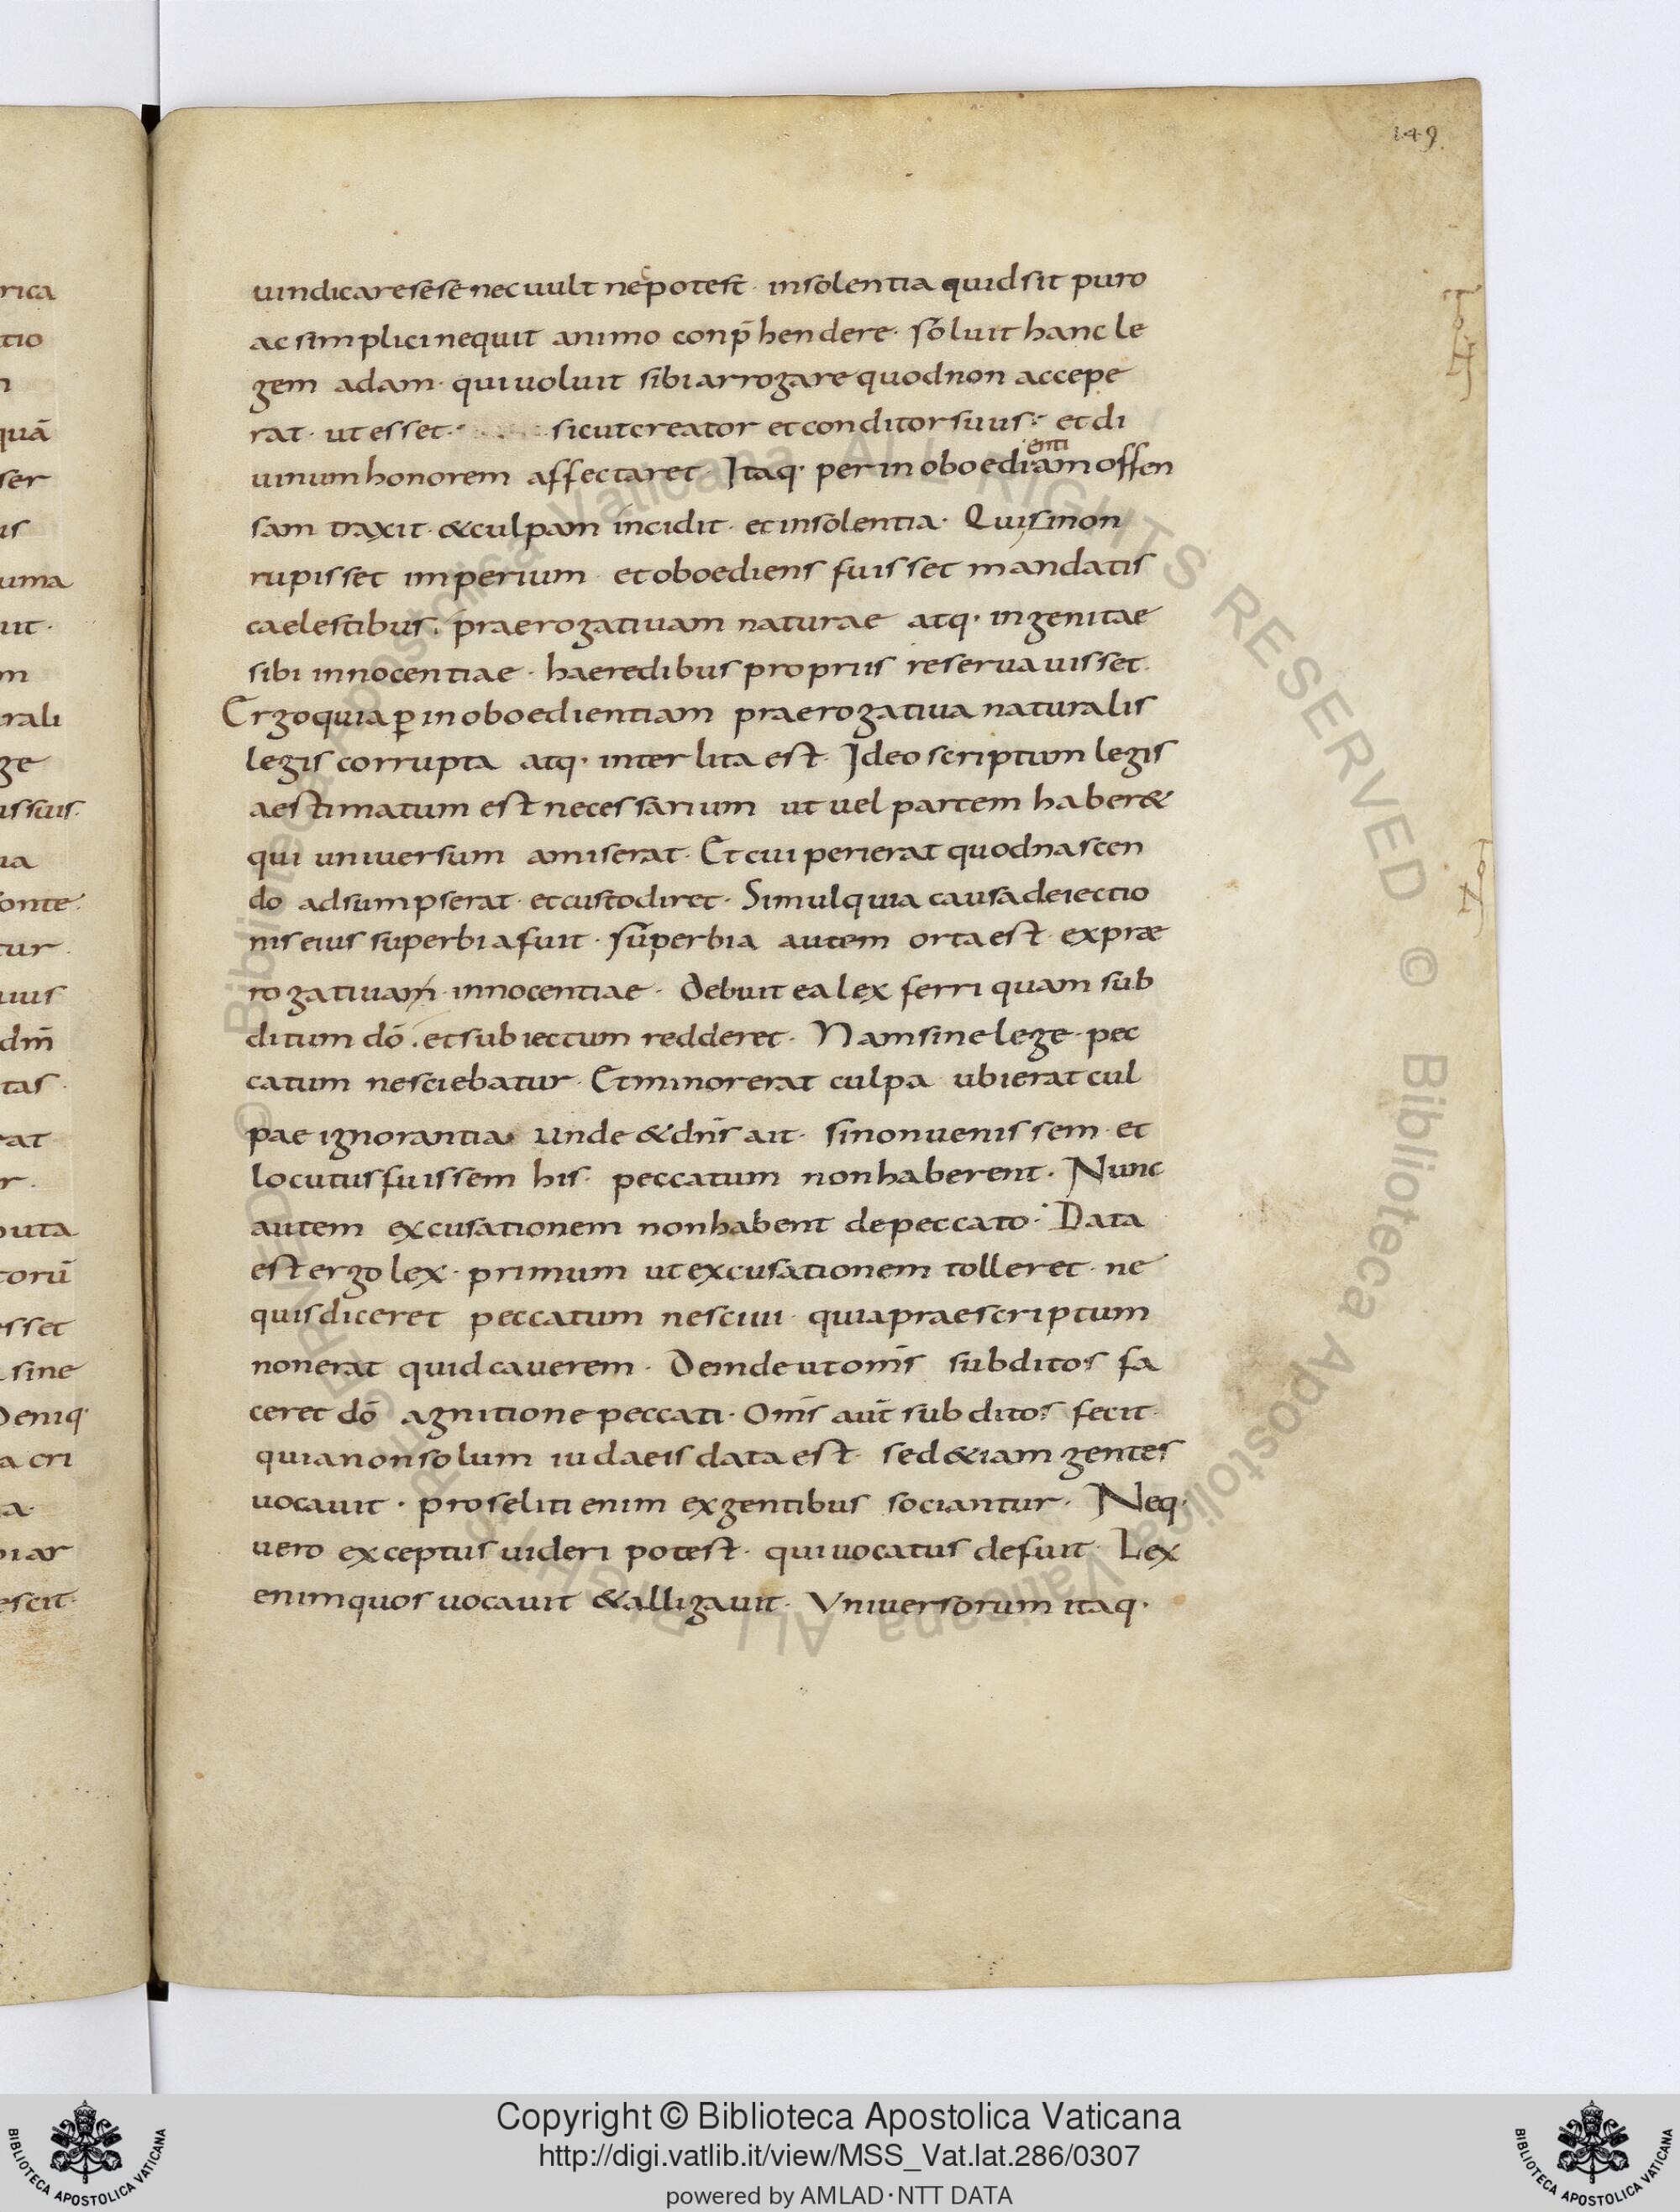 149.
uindicare sese nec uult nec potest · insolentia quid sit puro
ac simplici nequit animo conp̄hendere · Soluit hanc le
gem adam · qui uoluit sibi arrogare quod non accepe
rat · ut esset · sicut creator et conditor suus · et di
uinum honorem affectaret · Itaq· per inoboedientiam offen
sam traxit · & culpam incidit · et insolentia · Qui si non
rupisset imperium · et oboediens fuisset mandatis
caelestibus · praerogatiuam naturae atq· ingenitae
sibi innocentiae · haeredibus propriis reseruauisset ·
Ergo quia p̱ inoboedientiam praerogatiua naturalis
legis corrupta atq· interlita est · Ideo scriptum legis
aestimatum est necessarium ut uel partem haber&
qui uniuersum amiserat · Et cui perierat quod nascen
do adsumpserat · et custodiret · Simul quia causa deiectio
nis eius superbia fuit · superbia autem orta est · ex præ
rogatiuam · innocentiae · debuit ea lex ferri quam sub
ditum dō · et subiectum redderet · Nam sine lege · pec
catum nesciebatur · Et minor erat culpa ubi erat cul
pae ignorantia · unde & dn̄s ait · si non uenissem · et
locutus fuissem his · peccatum non haberent · Nunc
autem excusationem non habent de peccato · Data
est ergo lex · primum ut excusationem tolleret · ne
quis diceret peccatum nesciui · quia praescriptum
non erat quid cauerem · Deinde ut om̄s subditos fa
ceret dō agnitione peccati · Om̄s aut̄ subditos fecit ·
quia non solum iudaeis data est · sed &iam gentes
uocauit · proseliti enim ex gentibus sociantur · Neq·
uero exceptus uideri potest · qui uocatus defuit · Lex
enim quos uocauit & alligauit · Vniuersorum itaq·
rica
tio
quā
ser
uma
uit ·
rali
ge
ssuis ·
onte ·
tur ·
dm̄
tas ·
rat
puta
torū
esset
sine
Deniq·
a cri
escit ·
© Biblioteca Apostolica Vaticana ALL RIGHTS RESERVED © Biblioteca Apostolica Vaticana ALL RIGHTS RESERVED
Copyright © Biblioteca Apostolica Vaticana
http://digi.vatlib.it/view/MSS_Vat.lat.286/0307
powered by AMLAD·NTT DATA
BIBLIOTECA APOSTOLICA VATICANA
BIBLIOTECA APOSTOLICA VATICANA